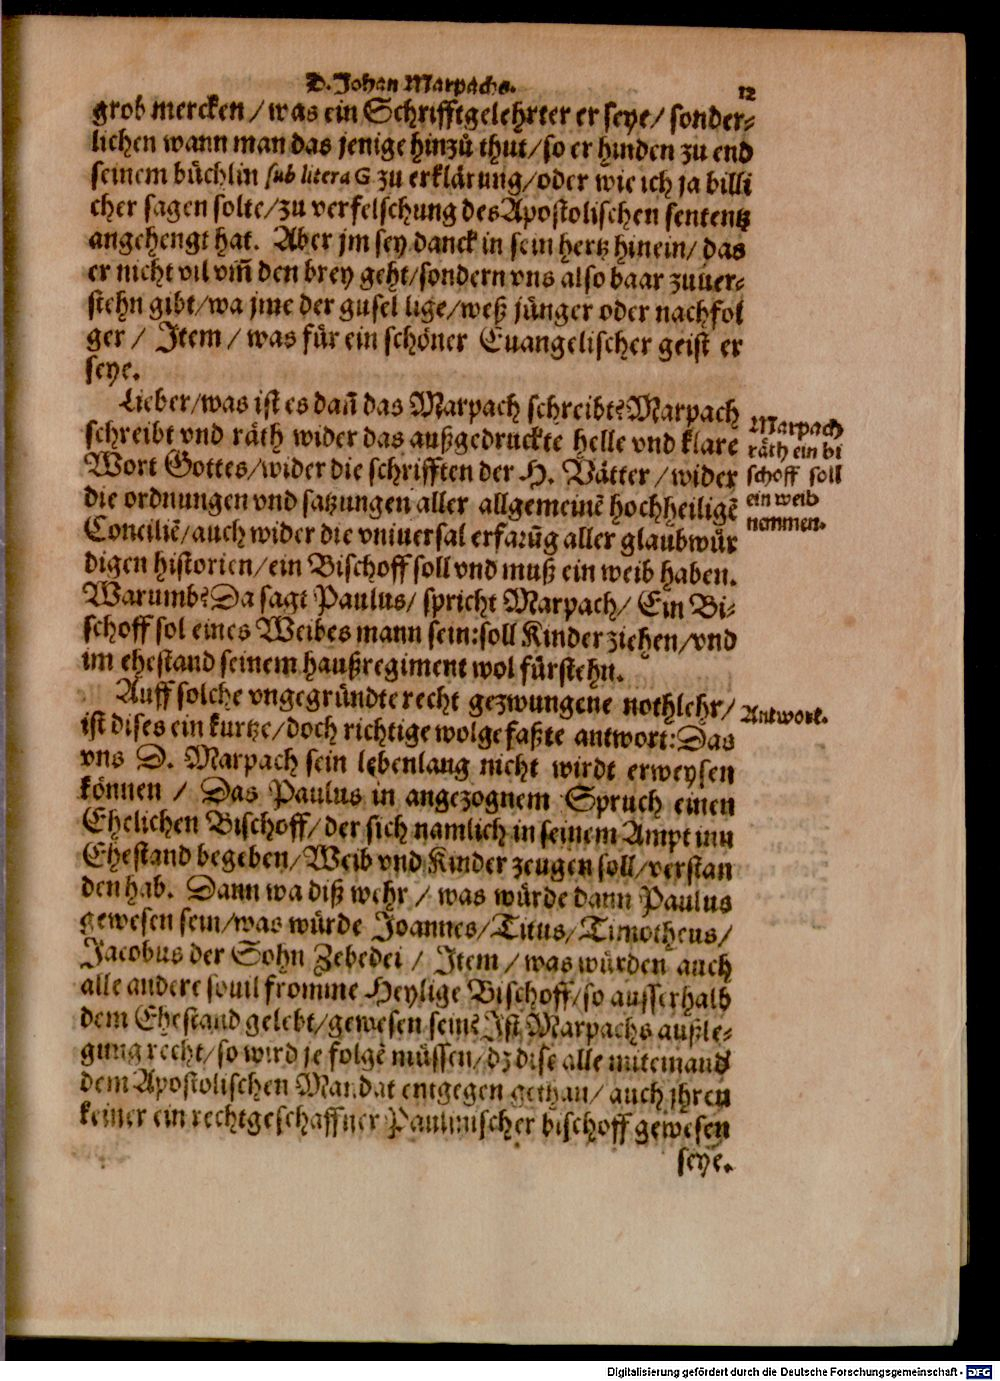 D. Johan Marpachs.
12
grob mercken / was ein Schrifftgelehrter er seye / sonder-
lichen wann man das jenige hinzů thut / so er hinden zu end
seinem bůchlin sub litera G zu erklärung / oder wie ich ja billi
cher sagen solte / zu verfelschung des Apostolischen sententz
angehengt hat. Aber jm sey danck in sein hertz hinein / das
er nicht vil vm̃ den brey geht / sondern vns also baar zuuer-
stehn gibt / wa jme der gusel lige / weß jünger oder nachfol
ger / Item / was für ein schöner Euangelischer geist er
seye.
Lieber / was ist es dañ das Marpach schreibt? Marpach
schreibt vnd räth wider das außgedruckte helle vnd klare
Wort Gottes / wider die schrifften der H. Vätter / wider
die ordnungen vnd satzungen aller allgemeinẽ hochheiligẽ
Conciliẽ / auch wider die vniuersal erfarũg aller glaubwür
digen historien / ein Bischoff soll vnd muß ein weib haben.
Warumb? Da sagt Paulus / spricht Marpach / Ein Bi-
schoff sol eines Weibes mann sein: soll Kinder ziehen / vnd
im ehestand seinem haußregiment wol fürstehn.
Marpach
räth ein bi
schoff soll
ein weib
nemmen.
Auff solche vngegründte recht gezwungene nothlehr /
ist dises ein kurtze / doch richtige wolgefaßte antwort: Das
vns D. Marpach sein lebenlang nicht wirdt erweysen
können / Das Paulus in angezognem Spruch einen
Ehelichen Bischoff / der sich namlich in seinem Ampt inn
Ehestand begeben / Weib vnd Kinder zeugen soll / verstan
den hab. Dann wa diß wehr / was würde dann Paulus
gewesen sein / was würde Joannes / Titus / Timotheus /
Jacobus der Sohn Zebedei / Item / was würden auch
alle andere souil fromme Heylige Bischoff / so ausserhalb
dem Ehestand gelebt / gewesen sein? Ist Marpachs außle-
gung recht / so wird je folgẽ müssen / dz dise alle miteinand
dem Apostolischen Mandat entgegen gethan / auch jhren
keiner ein rechtgeschaffner Paulinischer bischoff gewesen
seye.
Antwort.
Digitalisierung gefördert durch die Deutsche Forschungsgemeinschaft - DFG